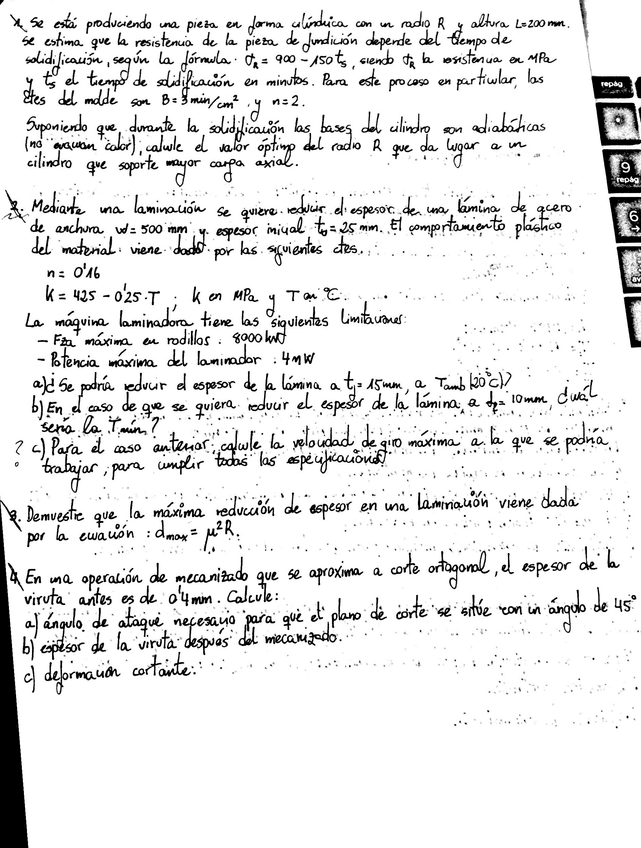 1. Se está produciendo una pieza en forma cilíndrica con un radio R y altura L=200mm.
Se estima que la resistencia de la pieza de fundición depende del tiempo de
solidificación, según la fórmula. σR = 900 - 150 ts, siendo σR la resistencia en MPa
y ts el tiempo de solidificación en minutos. Para este proceso en particular, las
ctes del molde son B = 3 min/cm², y n=2.
Suponiendo que durante la solidificación las bases del cilindro son adiabáticas
(no evacúan calor), calcule el valor óptimo del radio R que da lugar a un
cilindro que soporte mayor carga axial.
2. Mediante una laminación se quiere reducir el espesor de una lámina de acero
de anchura w=500 mm y espesor inicial to=25mm. El comportamiento plástico
del material viene dado por las siguientes ctes.
n = 0'16
K = 425 - 0'25·T ; K en MPa y T en °C.
La máquina laminadora tiene las siguientes limitaciones:
- Fza máxima en rodillos : 8000 kN
- Potencia máxima del laminador : 4MW
a) ¿Se podría reducir el espesor de la lámina a tf=15mm, a Tamb (20°C)?
b) En el caso de que se quiera reducir el espesor de la lámina a tf=10mm, ¿cuál
sería la Tmín?
? c) Para el caso anterior, calcule la velocidad de giro máxima a la que se podría
trabajar, para cumplir todas las especificaciones
3. Demuestre que la máxima reducción de espesor en una laminación viene dada
por la ecuación : dmax = μ²R.
4. En una operación de mecanizado que se aproxima a corte ortogonal, el espesor de la
viruta antes es de 0'4mm. Calcule:
a) ángulo de ataque necesario para que el plano de corte se sitúe con un ángulo de 45°
b) espesor de la viruta después del mecanizado.
c) deformación cortante.
repág
9
repág
6